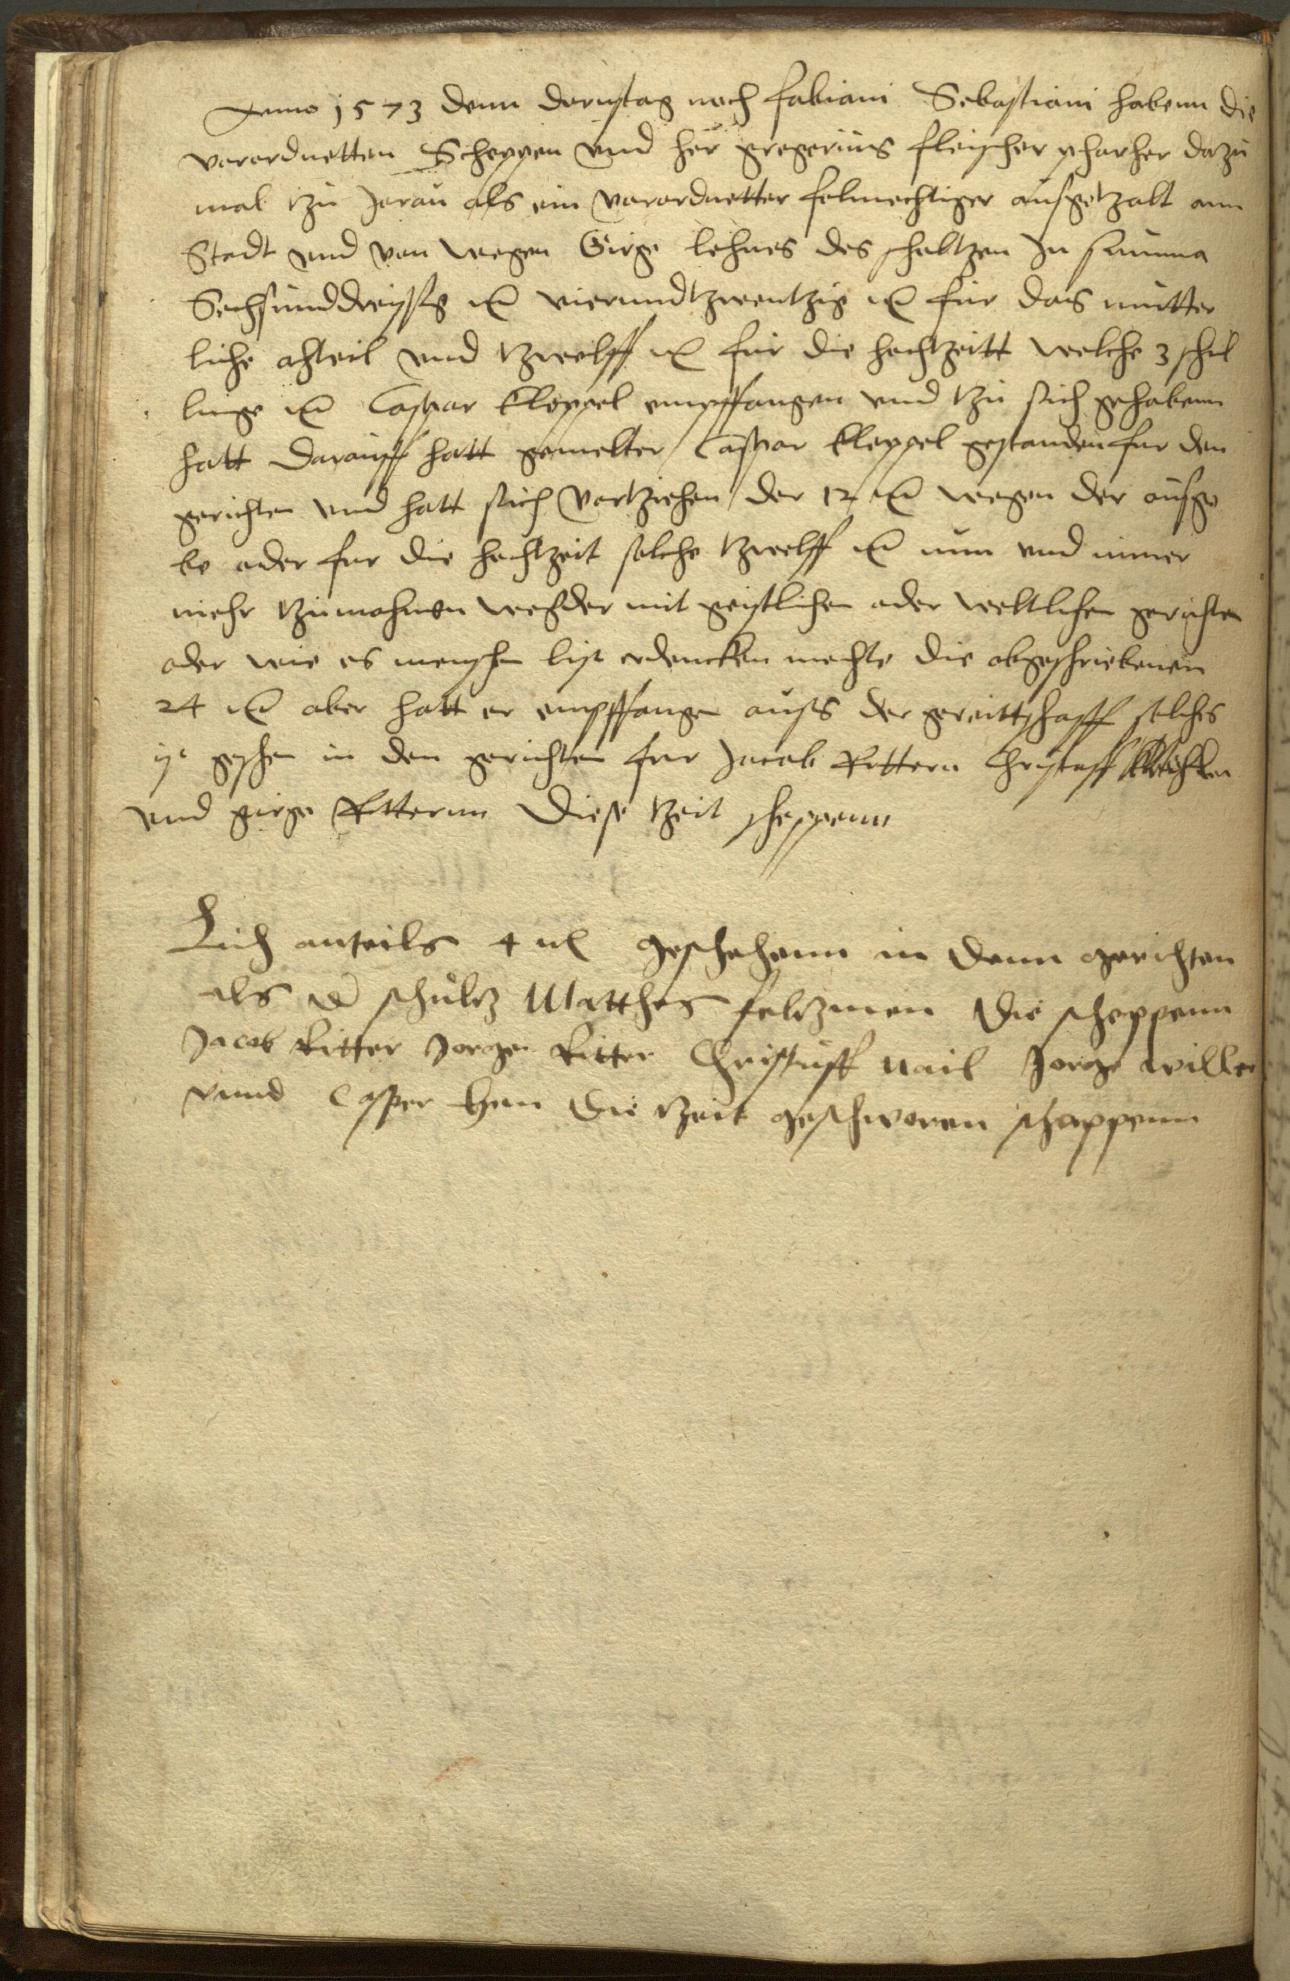 Anno 1573 denn dornstag nach fabiani Sebastiani habenn die
vorordnetten Scheppen vnd her gregerius fleischer pharher dazu
mal tzu Jerau als ein vorordnetter folmechtiger ausgetzalt ann
Stadt vnd von wegen Girge lehnes des scholtzen In summa
Sechsunddreyssig mͤ vierundtzwentzig mͤ fur das mutter
liche ahteil vnd tzwelff mͤ fur die hochtzeitt welche 3 schil
linge mͤ Caspar kleppel empffangen vnd tzu sich gehabenn
hatt darauff hatt gemelter Caspar kleppel gestanden fur den
gerichten vnd hatt sich vortziehen der 12 mͤ wegen der ausge
be oder fur die hochtzeit solche tzwelff mͤ nun vnd nimer
mehr tzumahnen weder mit geistlichen oder weltlichen gerichten
oder wie es menschen list erdencken mechte die obgeschriebenen
24 mͤ aber hatt er empffangen auss der gereittschafft solches
ist geschen in den gerichten fur Jacob Rittern Christoff
vnd girge Ritternn diese tzeit scheppenn
Lich anteils 4 mͤ geschehenn in denn gerichten
als d schultz Matthes feltzmen die scheppenn
Jacob Ritter Jorge Ritter Christuff nail Jorge wille
vnnd Casper hen die tzeit geschworen scheppenn